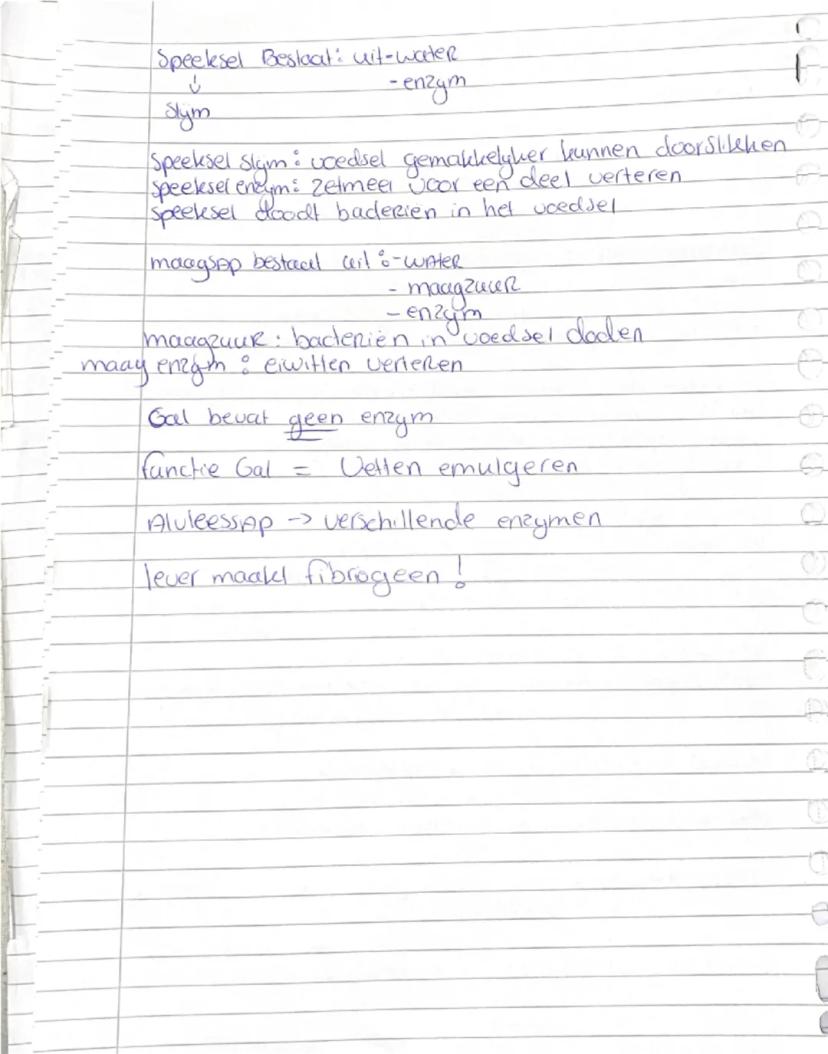 Speeksel Bestaat: uit-water
↓ - enzym
Slym
Speeksel slym: voedsel gemakkelyker kunnen doorslikken
speeksel enzym: zetmeel voor een deel verteren
speeksel doodt bacterien in het voedsel
maagsap bestaat uit:-water
- maagzuur
- enzym
maagzuur: bacterien in voedsel doden
maag enzym: eiwitten verteren
Gal bevat geen enzym
functie Gal = Vetten emulgeren
Alvleessap -> verschillende enzymen
lever maakt fibrogeen!